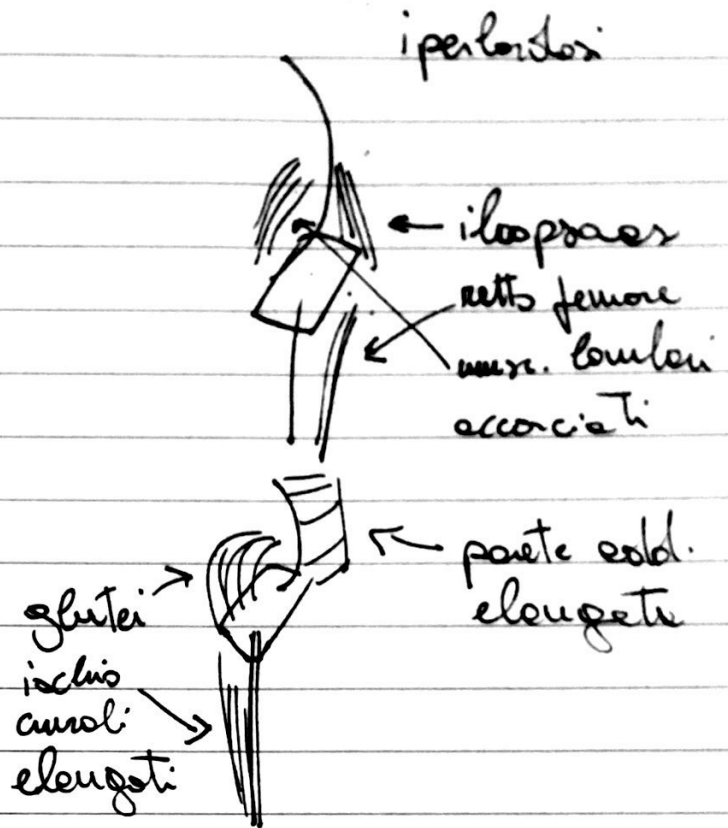 iperlordosi
ileopsoas
retto femore
musc. lombari
accorciati
parete add.
elongata
glutei
ischio
crurali
elongati